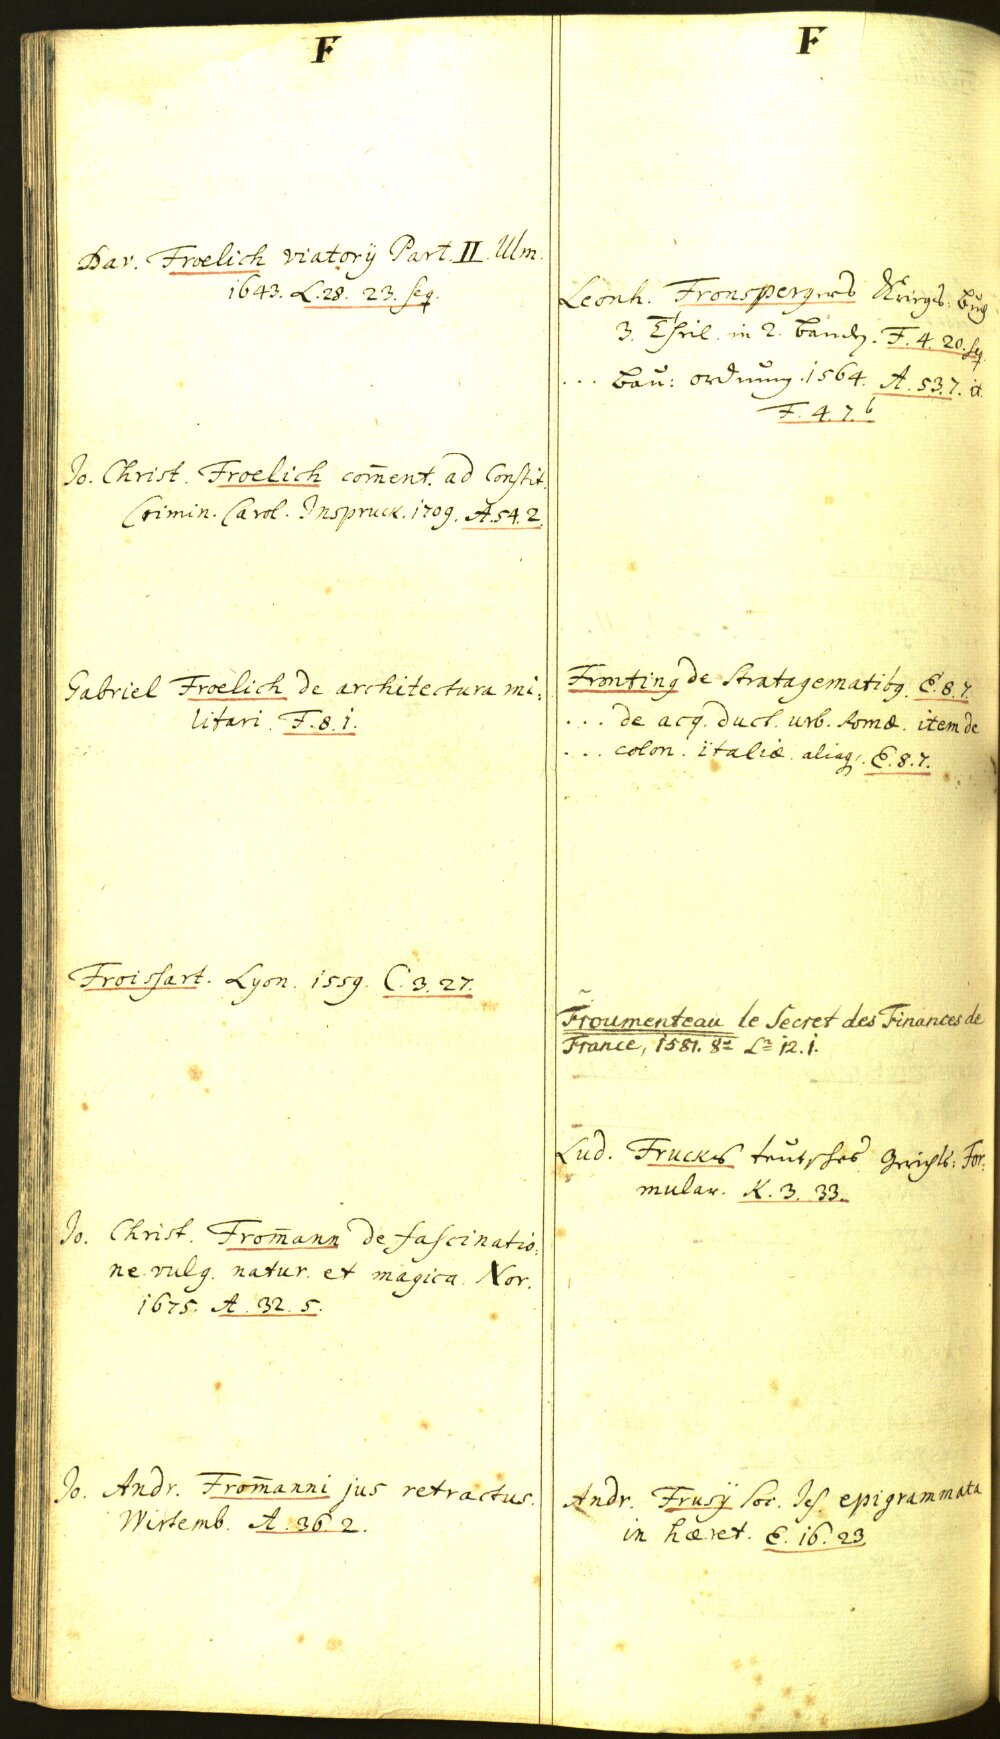 F
Dav. Froelich viatorij Part. II. Ulm.
1643. L. 28. 23. seq.
Jo. Christ. Froelich com̄ent. ad Constit.
Crimin. Carol. Inspruck. 1709. A. 54. 2.
Gabriel Froelich de architectura mi:
litari. F. 8. 1.
Froissart. Lyon. 1559. C. 3. 27.
Jo. Christ. From̄ann de fascinatio:
ne vulg. natur. et magica. Nor.
1675. A. 32. 5.
Jo. Andr. From̄anni jus retractus.
Wirtemb. A. 36. 2.
F
Leonh. Fronspergers Kriegs: Buch
3. Theil. in 2. Bänden. F. 4. 20. seq.
... Bau: ordnung. 1564. A. 53. 7. it.
F. 4. 7. b
Frontinq de Stratagematibq. E. 8. 7.
... de acq. duct. urb. Romæ. item de
... colon. italiæ. aliaq. E. 8. 7.
Froumenteau le Secret des Finances de
France, 1581. 8º L. 12. 1.
Lud. Frucks teutsches Gerichts: For:
mular. K. 3. 33.
Andr. Frusij Soc. Jes. epigrammata
in hæret. E. 16. 23.